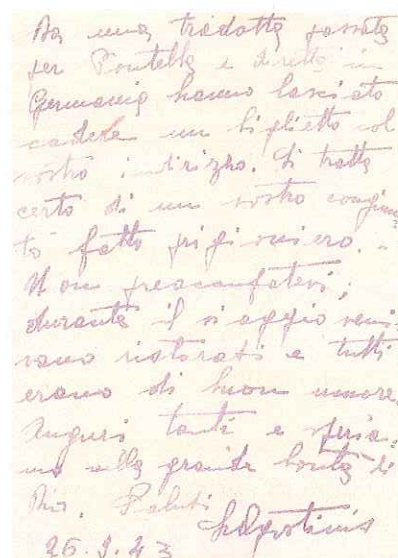 Da una tradotta passata
per Pontebba e diretta in
Germania hanno lasciato
cadere un biglietto col
vostro indirizzo. Si tratta
certo di un vostro congiun-
to fatto prigioniero.
Non preoccupatevi,
durante il viaggio veni-
vano ristorati e tutti
erano di buon umore.
Auguri tanti e speria-
mo alla grande bontà di
Dio. Saluti
26.9.43